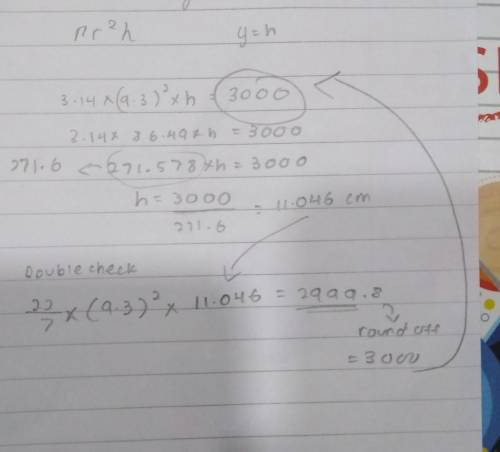 πr²h y=h
3.14 × (9.3)² × h = 3000
3.14 × 86.49 × h = 3000
271.6 ← 271.578 × h = 3000
h = 3000 / 271.6 = 11.046 cm
Double check
22/7 × (9.3)² × 11.046 = 2999.8
round off
= 3000